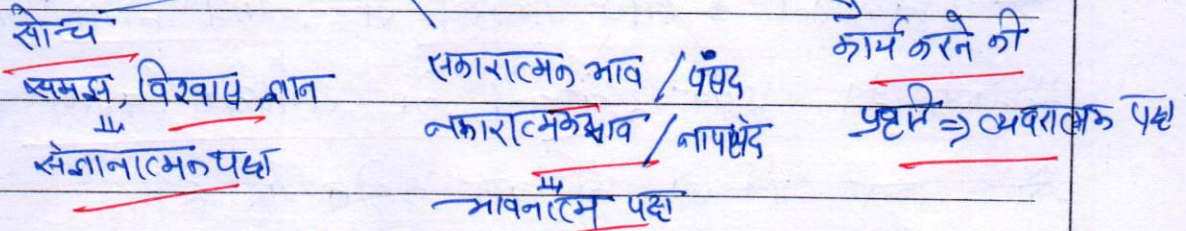 सोच
समझ, विश्वास, ज्ञान
संज्ञानात्मक पक्ष
सकारात्मक भाव / पसंद
नकारात्मक भाव / नापसंद
भावनात्म पक्ष
कार्य करने की
प्रवृति => व्यवरात्मक पक्ष